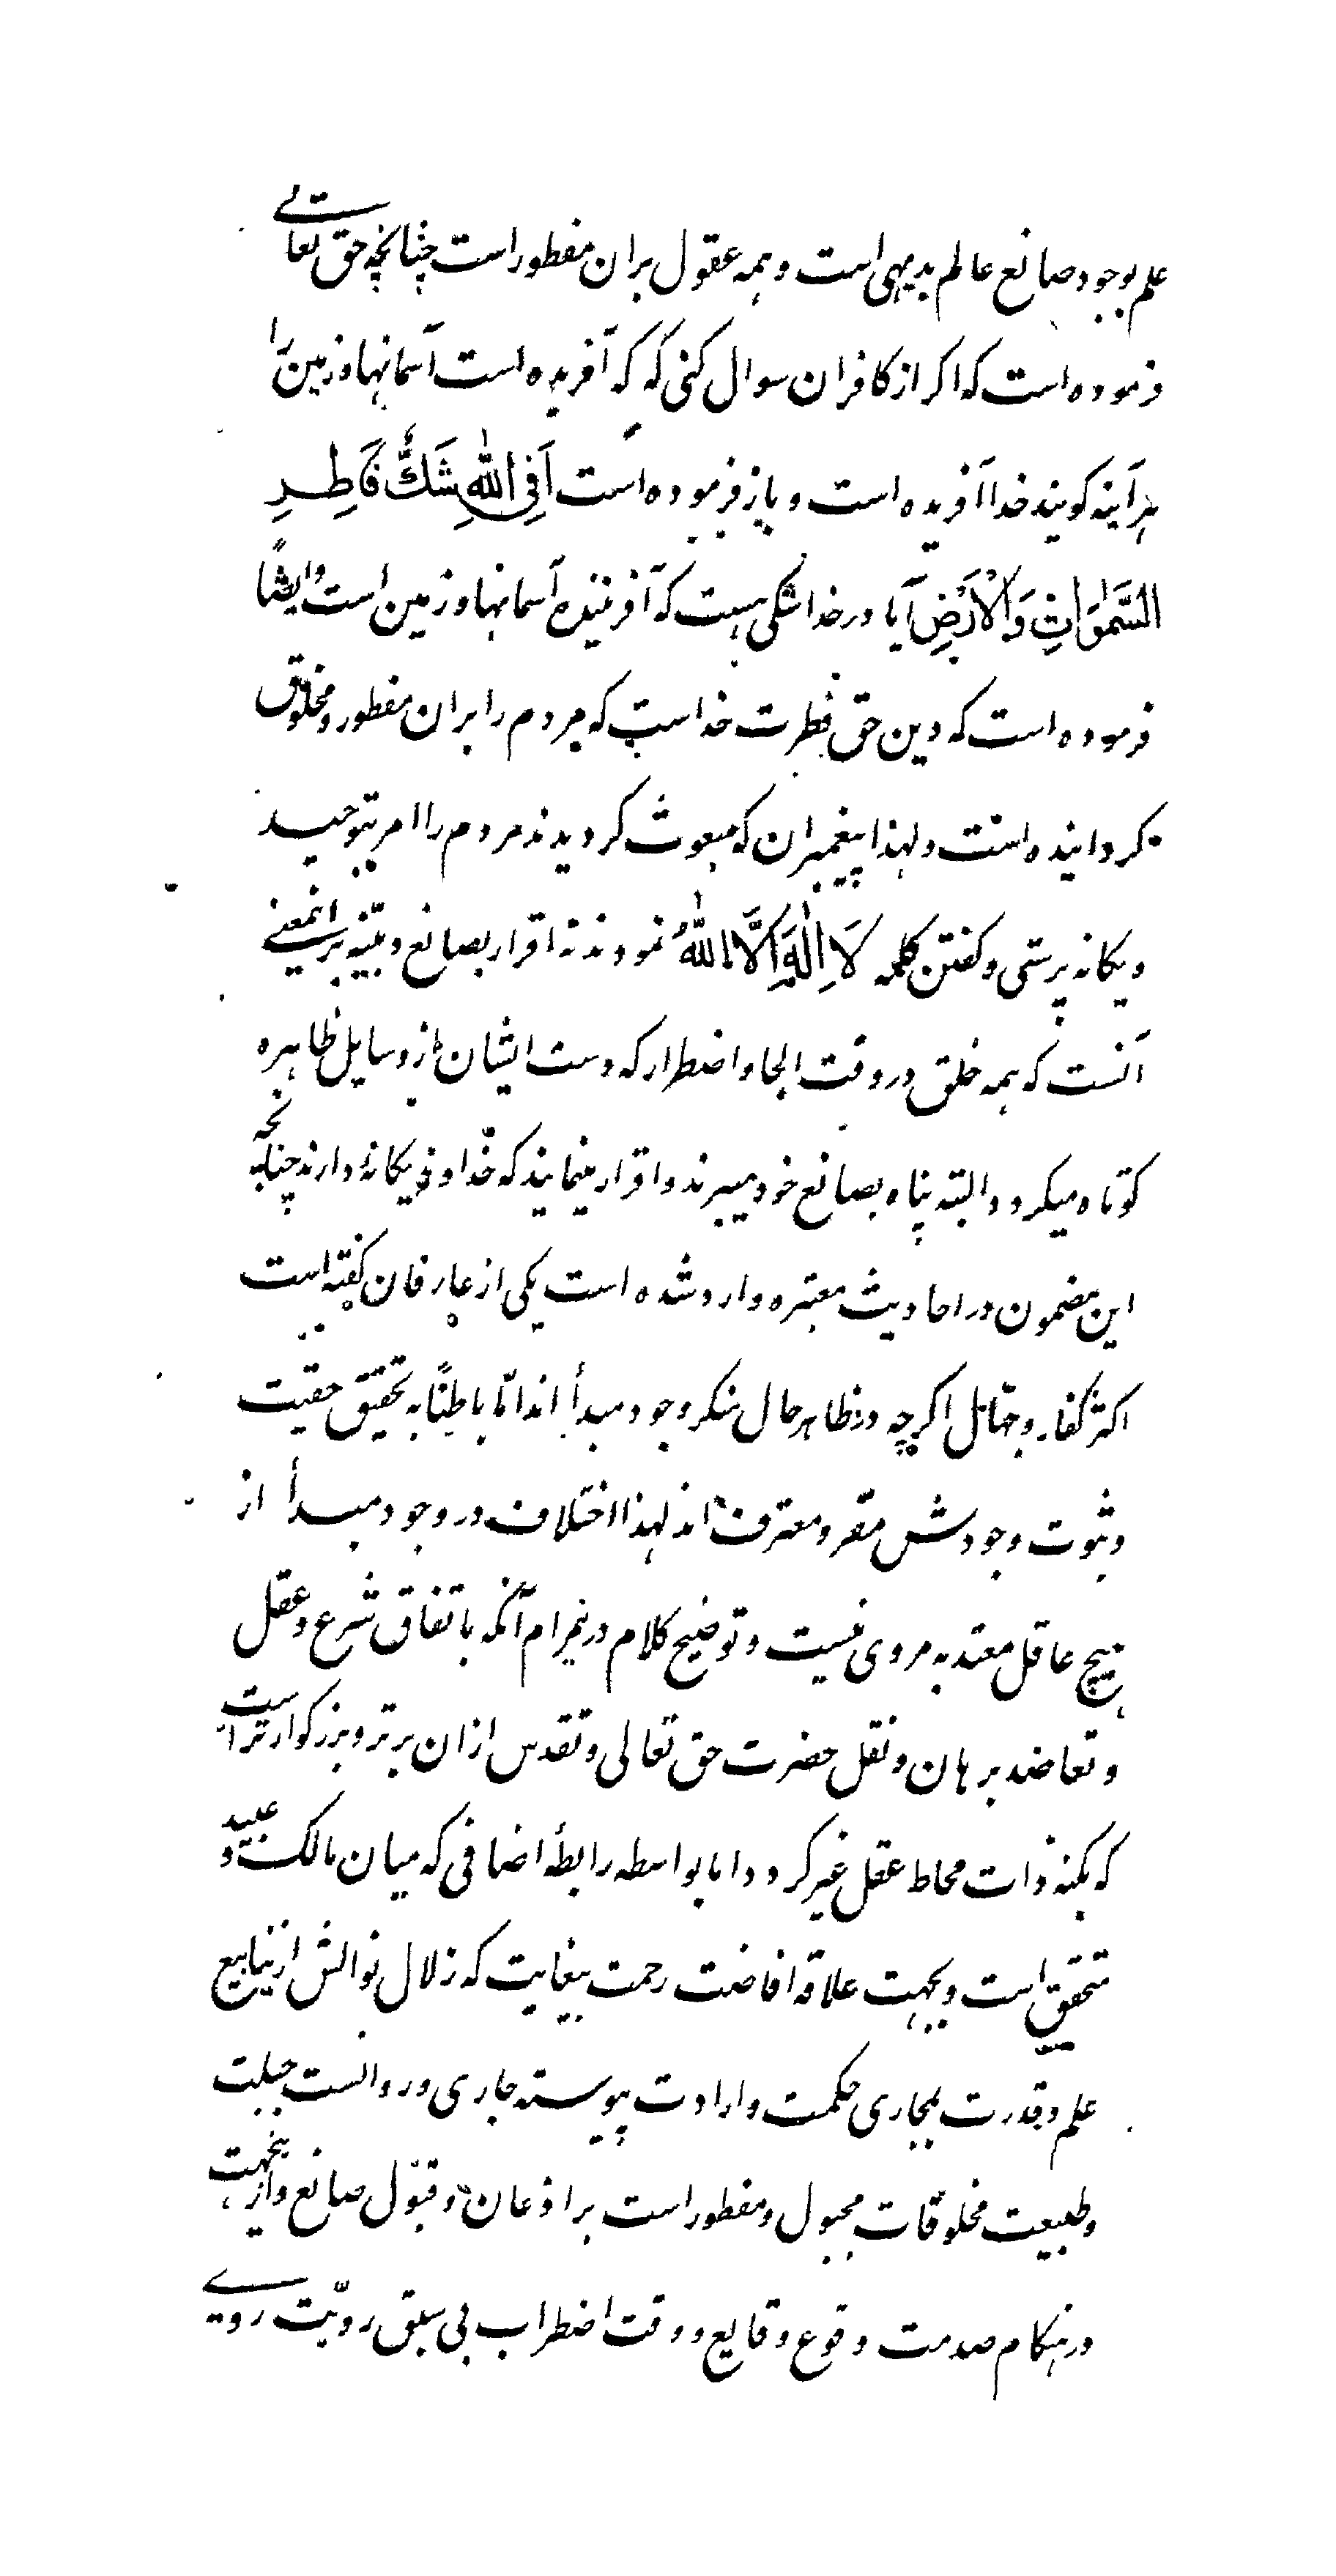 علم بوجود صانع عالم بدیهی است و همه عقول بران مفطور است چنانچه حق تعالی
فرموده است که اکر از کافران سوال کنی که که آفریده است آسمانها و زمین را
هر آینه کویند خدا آفریده است و باز فرموده است اَفِی اللّٰهِ شَكٌّ فَاطِرِ
السَّمٰوَاتِ وَالْاَرْضِ آیا در خدا شکی هست که آفریننده آسمانها و زمین است و ایضًا
فرموده است که دین حق فطرت خداست که مردم را بران مفطور و مخلوق
کردانیده است و لهذا پیغمبران که مبعوث کردیدند مردم را امر بتوحید
و یکانه پرستی و کفتن کلمه لَا اِلٰهَ اِلَّا اللّٰهُ نمودند نه اقرار بصانع و مبیّنه بر اینمعنے
آنست که همه خلق در وقت الجا و اضطرار که دست ایشان از وسایل ظاهره
کوتاه میکردد البته پناه بصانع خود میبرند و اقرار مینمایند که خداوند یکانه دارند چنانچه
این مضمون در احادیث معتبره وارد شده است یکی از عارفان کفته است
اکثر کفار و جهّال اکرچه در ظاهر حال منکر وجود مبدأ اند امّا باطنًا به تحقیق حقیت
و ثبوت وجودش مقر و معترف اند لهذا اختلاف در وجود مبدأ از
هیچ عاقل معتد به مروی نیست و توضیح کلام درینمرام آنکه باتفاق شرع و عقل
و تعاضد برهان و نقل حضرت حق تعالی و تقدس ازان برتر و بزرکوارتر است
که بکنه ذات محاط عقل غیر کردد اما بواسطه رابطهٔ اضافی که میان مالک و عبید
متحقق است و بجهت علاقه افاضت رحمت بیغایت که زلال نوالش از ینابیع
علم و قدرت بمجاری حکمت و ارادت پیوسته جاری و روانست جبلت
و طبیعت مخلوقات مجبول و مفطور است بر اذعان و قبول صانع و ازینجهت
در هنکام صدمت وقوع وقایع و وقت اضطراب بی سبق رویّت روی